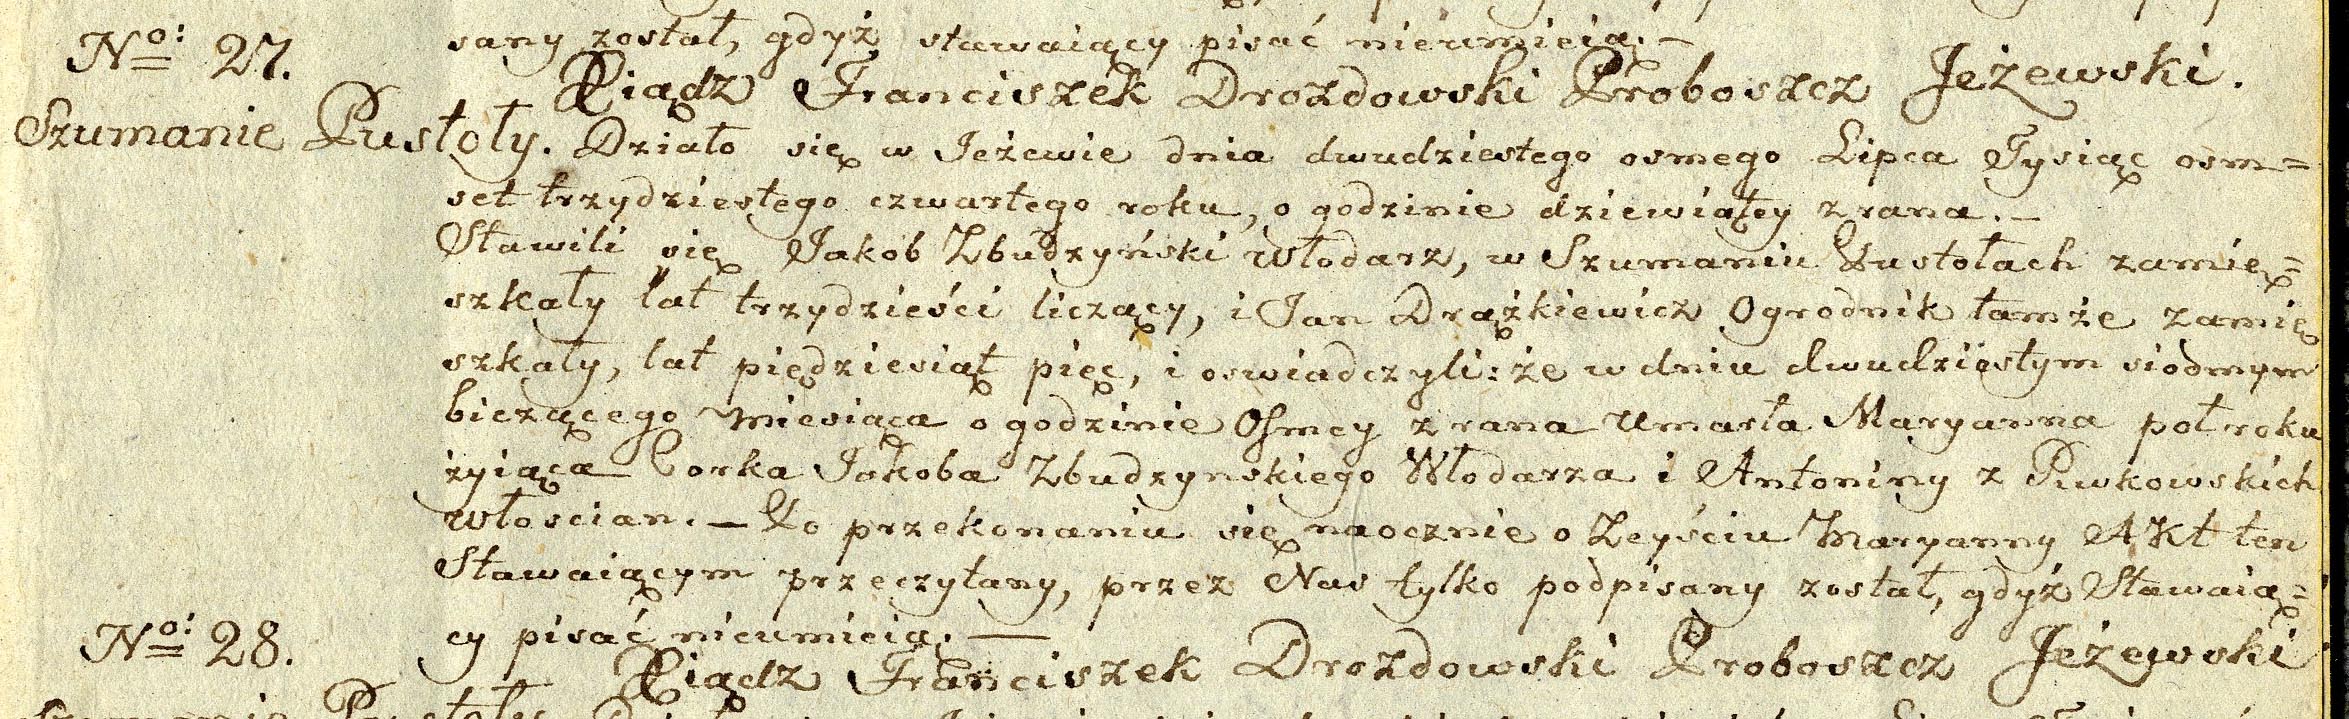 sany został, gdyż stawaiący pisać nieumieią. –
No: 27.
Xiądz Franciszek Drozdowski Proboszcz Jeżewski.
Szumanie Pustoły. Działo się w Jeżewie dnia dwudziestego osmego Lipca Tysiąc osm=
set trzydziestego czwartego roku, o godzinie dziewiątey z rana. –
Stawili się Jakób Zbudzyński Włodarz, w Szumaniu Pustołach zamie=
szkały lat trzydzieści liczący, i Jan Drążkiewicz Ogrodnik tamże zamię
szkały, lat piędziesiąt pięc, i oswiadczyli: że w dniu dwudziestym siodmym
biczącego miesiąca o godzinie Osmey z rana umarła Maryanna poł roku
żyiąca Corka Jakoba Zbudzynskiego Włodarza i Antoniny z Puwkowskich
włoscian. – Po przekonaniu się naocznie o Zeyściu Maryanny Akt ten
Stawaiącym przeczytany, przez Nas tylko podpisany został, gdyż Stawaią=
cy pisać nieumieią. —
No: 28.
Xiądz Franciszek Drozdowski Proboszcz Jeżewski